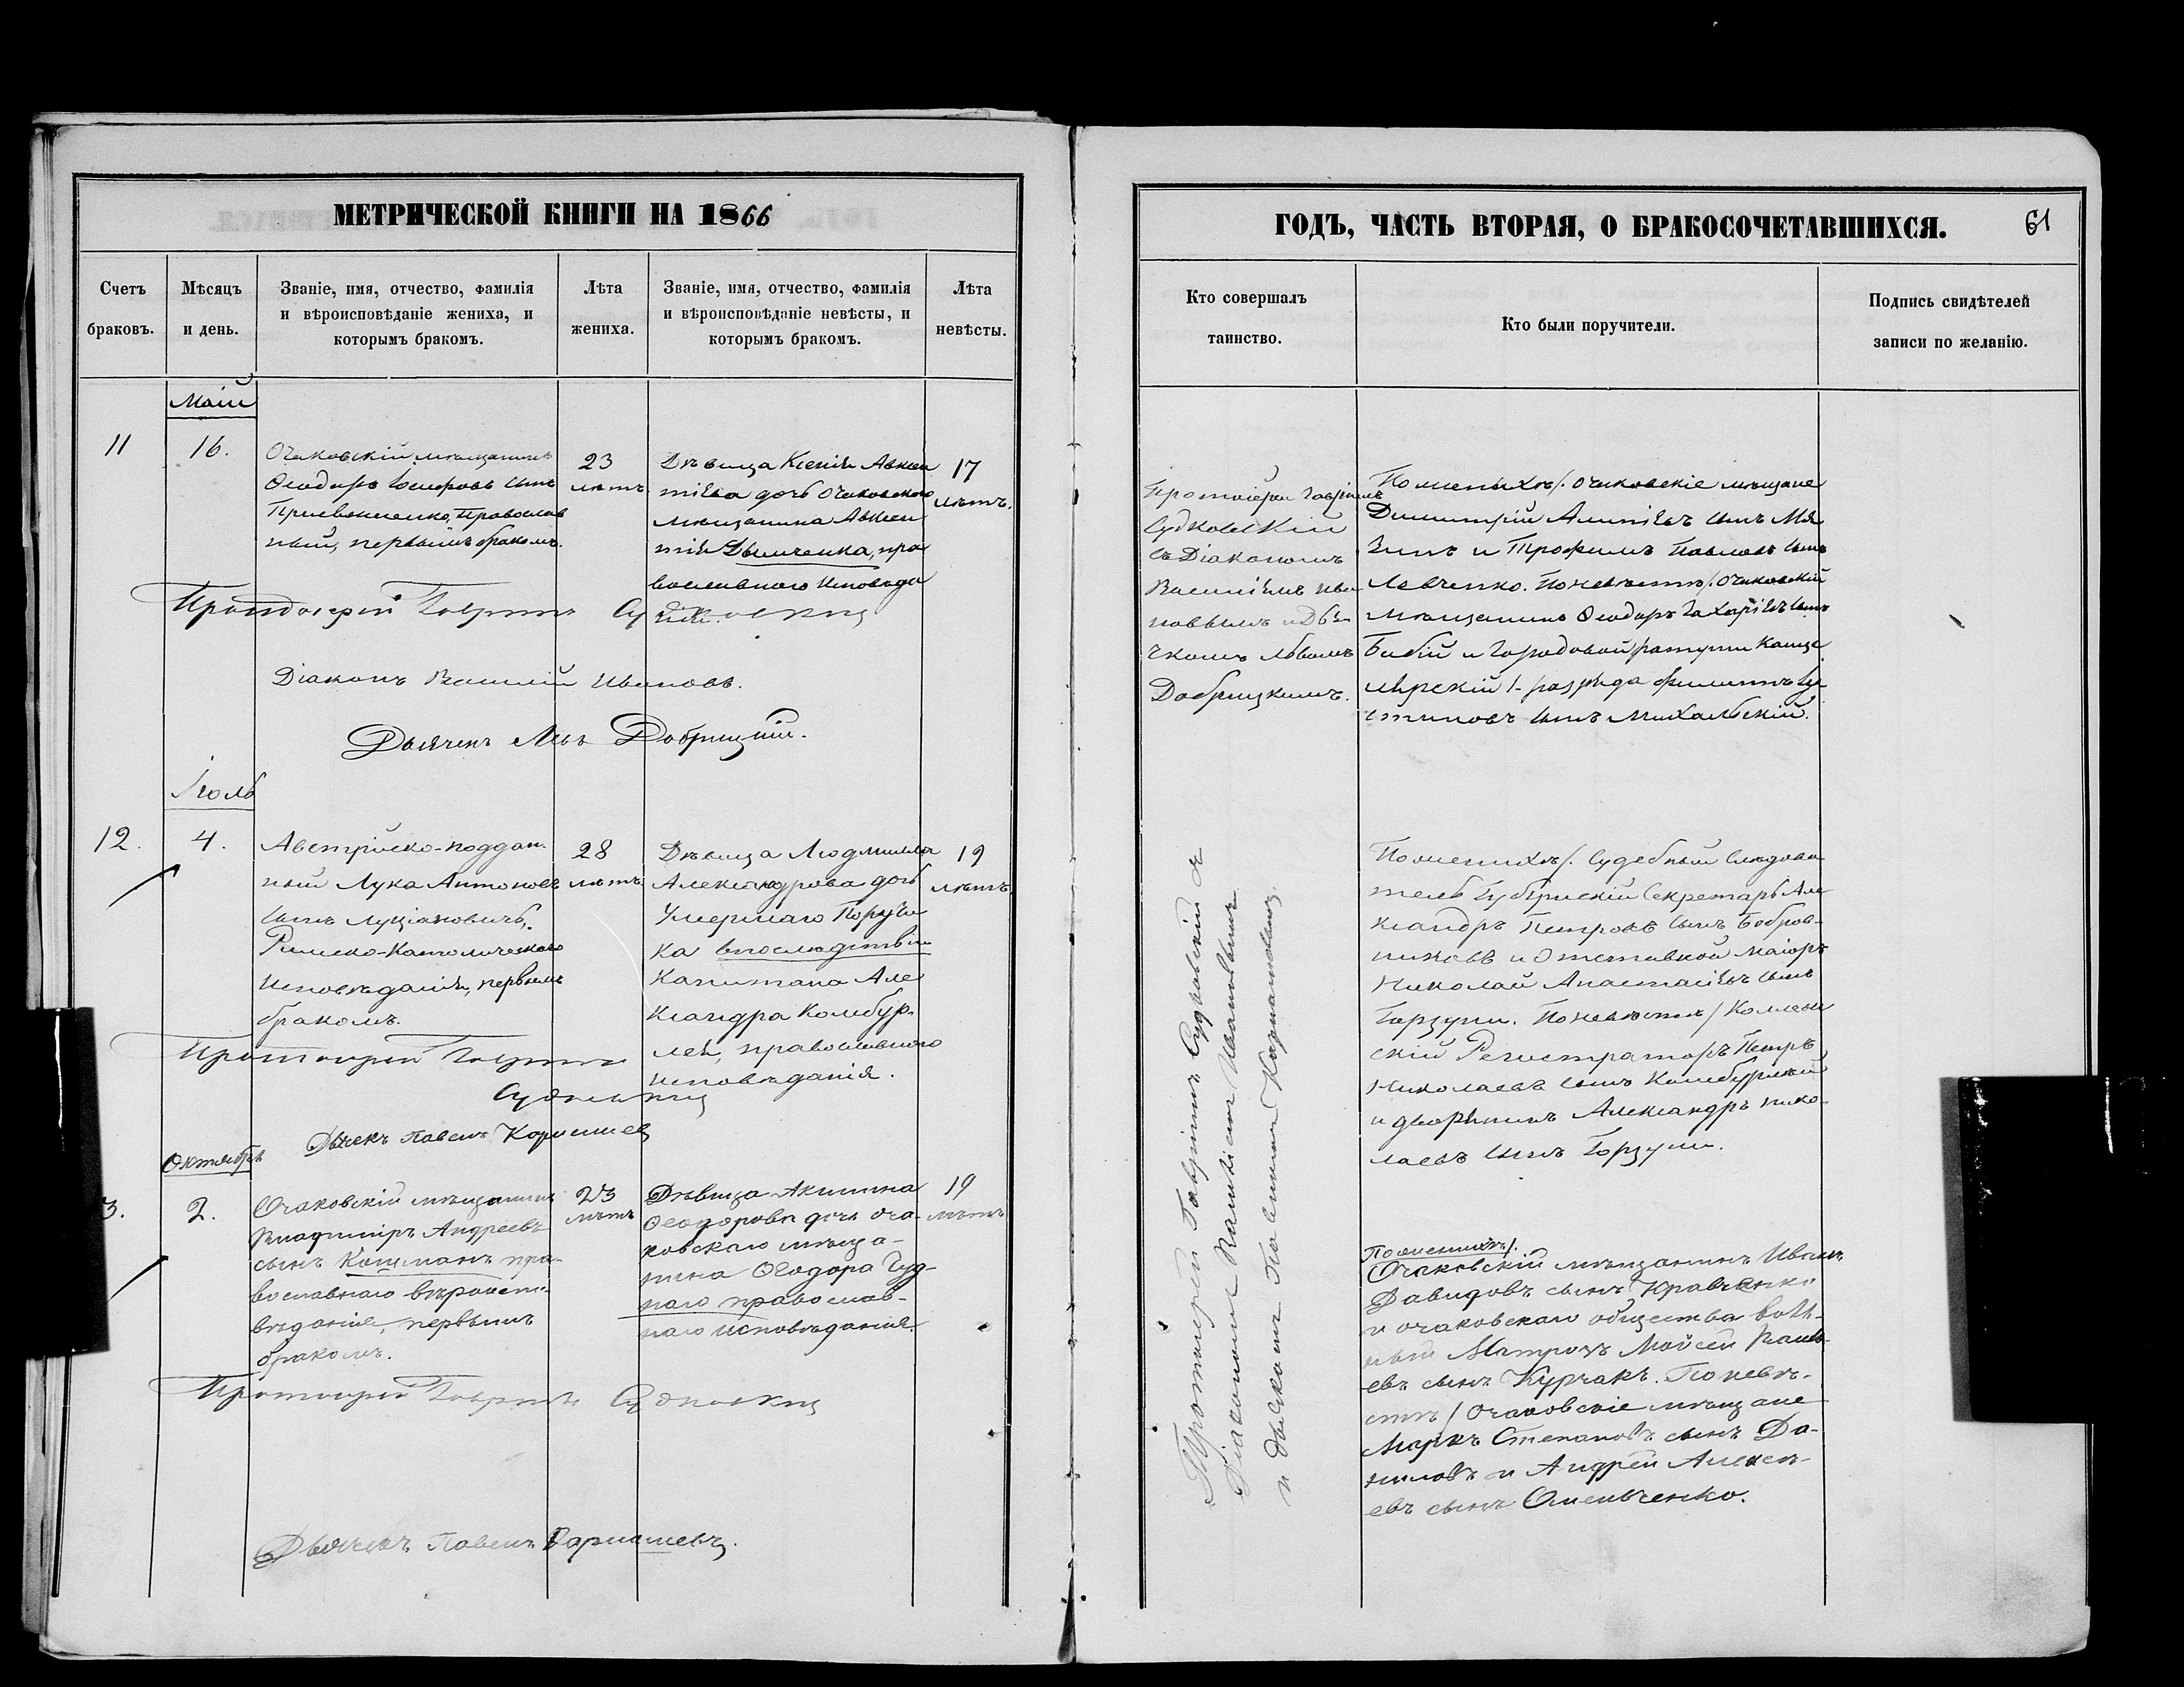 МЕТРИЧЕСКОЙ КНИГИ НА 1866
Счетъ браковъ.
Мѣсяцъ и день.
Званіе, имя, отчество, фамилія
и вѣроисповѣданіе жениха, и
которымъ бракомъ.
Лѣта жениха.
Званіе, имя, отчество, фамилія
и вѣроисповѣданіе невѣсты, и
которымъ бракомъ.
Лѣта невѣсты.
Маій
11
16.
Очаковскій мѣщанинъ
Ѳеодоръ Іосифовъ сынъ
Православ
ный, первымъ бракомъ.
23
лѣтъ
Дѣвица Ксенія Авксен
тіева дочь Очаковскаго
мѣщанина Авксен
тія Дымченка, пра
вославнаго исповѣда
нія.
17
лѣтъ.
Протоіерей Гавріилъ Судковскій
Діаконъ Василій Ивановъ.
Дьячекъ Левъ Добрицкій.
Іюль
12.
4.
Австрійско-поддан
ный Лука Антоновъ
сынъ Луціановичъ,
Римско-Католическаго
исповѣданія, первымъ
бракомъ.
28
лѣтъ
Дѣвица Людмилла
Александрова дочь
Умершаго Поручи
ка впослѣдствіи
Капитана Але
ксандра Комбур
лей, православнаго
исповѣданія.
19
лѣтъ
Протоіерей Гавріилъ
Судковскій
Дьячекъ Павелъ
Октябрь
3.
2.
Очаковскій мѣщанинъ
Владиміръ Андреевъ
сынъ Кошманъ пра-
вославнаго вѣроиспо-
вѣданіе, первымъ
бракомъ.
23
лѣтъ
Дѣвица Акилина
Ѳеодорова дочь Оча-
ковскаго мѣща-
нина Ѳеодора Чуд-
наго православ-
наго исповѣданія.
19
лѣтъ
Протоіерей Гавріилъ Судковскій
Дьячекъ Павелъ
ГОДЪ, ЧАСТЬ ВТОРАЯ, О БРАКОСОЧЕТАВШИХСЯ.
61
Кто совершалъ таинство.
Кто были поручители.
Подпись свидѣтелей записи по желанію.
Протоіерей Гавріилъ
Судковскій
съ Діакономъ
Василіемъ Ива
новымъ и Дья
чкомъ Львомъ
Добрицкимъ.
По женихѣ/. Очаковскіе мѣщане
Димитрій сынъ Мя
зинъ и Трофимъ Павловъ сынъ
Левченко. По невѣстѣ/. Очаковскій
мѣщанинъ Ѳеодоръ Захаріевъ сынъ
Бабій и Городовой ратуши Канце
лярскій 1 разряда Филиппъ Іу
стиновъ сынъ Михальскій.
Протоіерей Гавріилъ Судковскій съ
Діакономъ Василіемъ Ивановымъ
и дьячкомъ Павломъ
По женихѣ/. Судебный Слѣдова
тель Губернскій Секретарь Але
ксандръ Петровъ сынъ Бобров-
никовъ и Отставной Маіоръ
Николай Анастасіевъ сынъ
По невѣстѣ/ Коллеж
скій Регистраторъ Петръ
Николаевъ сынъ
и дворянинъ Александръ Нико
лаевъ сынъ
По женихѣ/.
Очаковскій мѣщанинъ Иванъ
Давидовъ сынъ Кравченко
и очаковскаго общества воль-
ный Матрозъ Мойсей
евъ сынъ Курчакъ. По невѣ-
стѣ/ Очаковскіе мѣщане
Маркъ Степановъ сынъ Да-
ниловъ и Андрей Алексѣ-
евъ сынъ Омельченко.